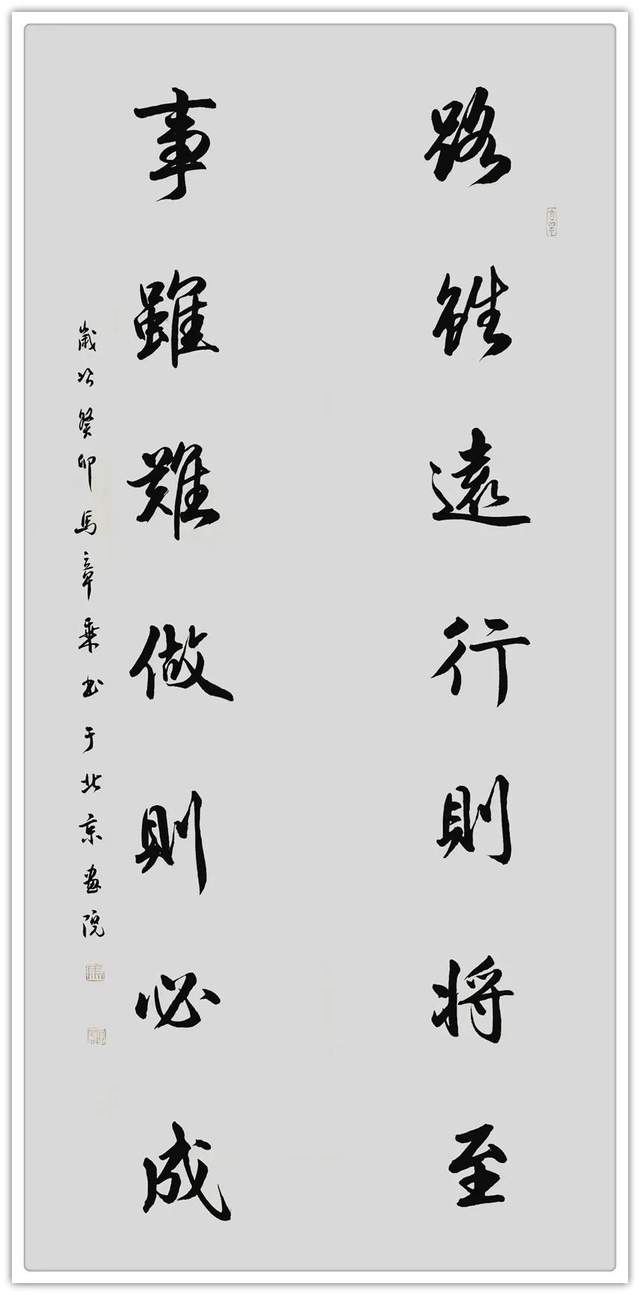 路雖遠行則将至
事雖難做則必成
歲次癸卯馬章乗书于北京畫院